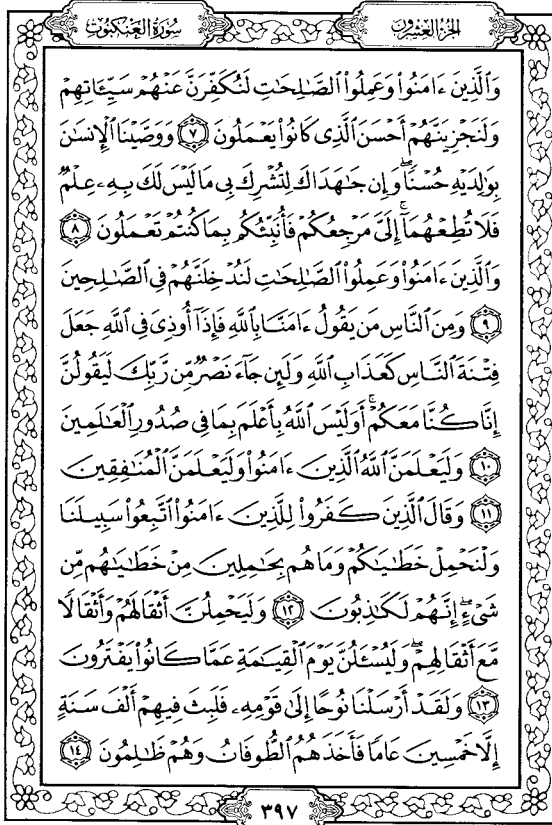 سُورَةُ العَنكَبُوتِ
الجُزْءُ العِشْرُونَ
وَٱلَّذِينَ ءَامَنُوا۟ وَعَمِلُوا۟ ٱلصَّٰلِحَٰتِ لَنُكَفِّرَنَّ عَنْهُمْ سَيِّـَٔاتِهِمْ
وَلَنَجْزِيَنَّهُمْ أَحْسَنَ ٱلَّذِى كَانُوا۟ يَعْمَلُونَ ٧ وَوَصَّيْنَا ٱلْإِنسَٰنَ
بِوَٰلِدَيْهِ حُسْنًا ۖ وَإِن جَٰهَدَاكَ لِتُشْرِكَ بِى مَا لَيْسَ لَكَ بِهِۦ عِلْمٌ
فَلَا تُطِعْهُمَآ ۚ إِلَىَّ مَرْجِعُكُمْ فَأُنَبِّئُكُم بِمَا كُنتُمْ تَعْمَلُونَ ٨
وَٱلَّذِينَ ءَامَنُوا۟ وَعَمِلُوا۟ ٱلصَّٰلِحَٰتِ لَنُدْخِلَنَّهُمْ فِى ٱلصَّٰلِحِينَ
٩ وَمِنَ ٱلنَّاسِ مَن يَقُولُ ءَامَنَّا بِٱللَّهِ فَإِذَآ أُوذِىَ فِى ٱللَّهِ جَعَلَ
فِتْنَةَ ٱلنَّاسِ كَعَذَابِ ٱللَّهِ وَلَئِن جَآءَ نَصْرٌ مِّن رَّبِّكَ لَيَقُولُنَّ
إِنَّا كُنَّا مَعَكُمْ ۚ أَوَلَيْسَ ٱللَّهُ بِأَعْلَمَ بِمَا فِى صُدُورِ ٱلْعَٰلَمِينَ
١٠ وَلَيَعْلَمَنَّ ٱللَّهُ ٱلَّذِينَ ءَامَنُوا۟ وَلَيَعْلَمَنَّ ٱلْمُنَٰفِقِينَ
١١ وَقَالَ ٱلَّذِينَ كَفَرُوا۟ لِلَّذِينَ ءَامَنُوا۟ ٱتَّبِعُوا۟ سَبِيلَنَا
وَلْنَحْمِلْ خَطَٰيَٰكُمْ وَمَا هُم بِحَٰمِلِينَ مِنْ خَطَٰيَٰهُم مِّن
شَىْءٍ ۖ إِنَّهُمْ لَكَٰذِبُونَ ١٢ وَلَيَحْمِلُنَّ أَثْقَالَهُمْ وَأَثْقَالًا
مَّعَ أَثْقَالِهِمْ ۖ وَلَيُسْـَٔلُنَّ يَوْمَ ٱلْقِيَٰمَةِ عَمَّا كَانُوا۟ يَفْتَرُونَ
١٣ وَلَقَدْ أَرْسَلْنَا نُوحًا إِلَىٰ قَوْمِهِۦ فَلَبِثَ فِيهِمْ أَلْفَ سَنَةٍ
إِلَّا خَمْسِينَ عَامًا فَأَخَذَهُمُ ٱلطُّوفَانُ وَهُمْ ظَٰلِمُونَ ١٤
٣٩٧